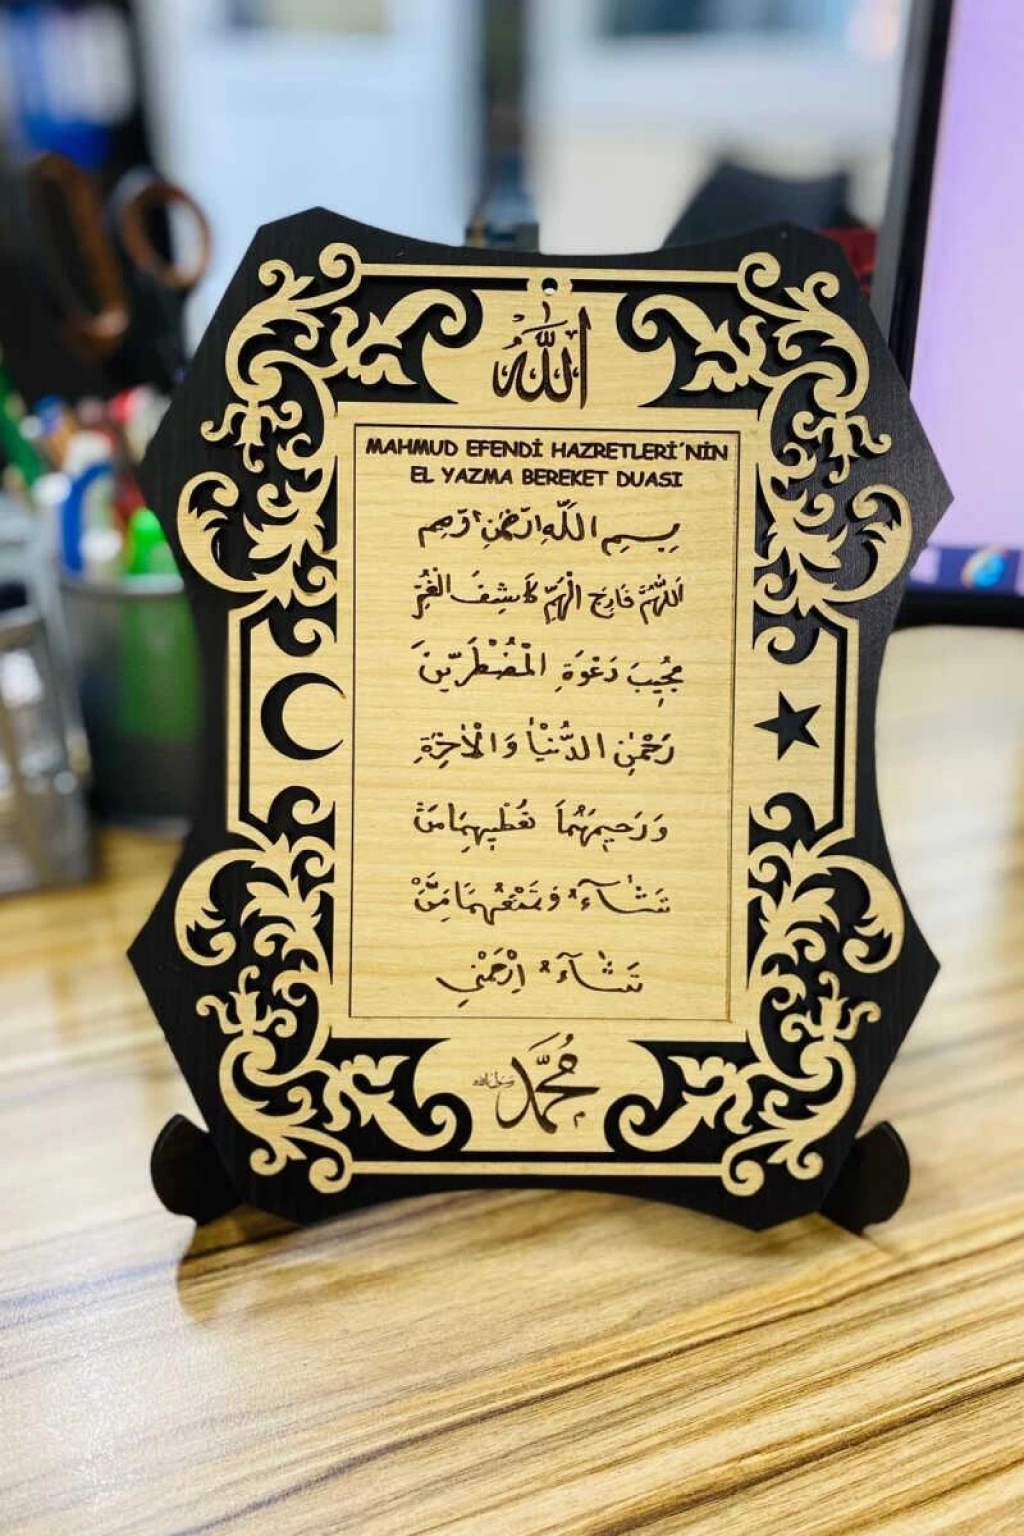 الله
MAHMUD EFENDİ HAZRETLERİ'NİN
EL YAZMA BEREKET DUASI
بِسْمِ اللَّهِ الرَّحْمٰنِ الرَّحِيم
اَللّٰهُمَّ فَارِجَ الْهَمِّ كَاشِفَ الْغَمِّ
مُجِيبَ دَعْوَةِ الْمُضْطَرِّينَ
رَحْمٰنَ الدُّنْيَا وَالْاٰخِرَةِ
وَرَحِيمَهُمَا تُعْطِيهِمَا مَنْ
تَشَآءُ وَتَمْنَعُهُمَا مِمَّنْ
تَشَآءُ اِرْحَمْنِي
مُحَمَّد
رسول الله